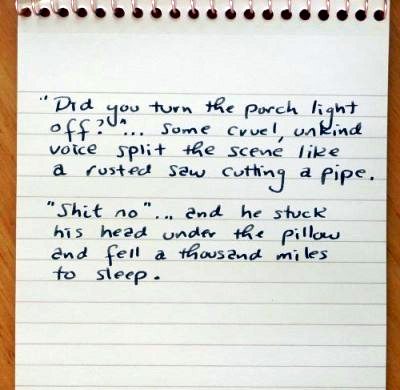 "Did you turn the porch light
off?"... some cruel, unkind
voice split the scene like
a rusted saw cutting a pipe.
"Shit no"... and he stuck
his head under the pillow
and fell a thousand miles
to sleep.